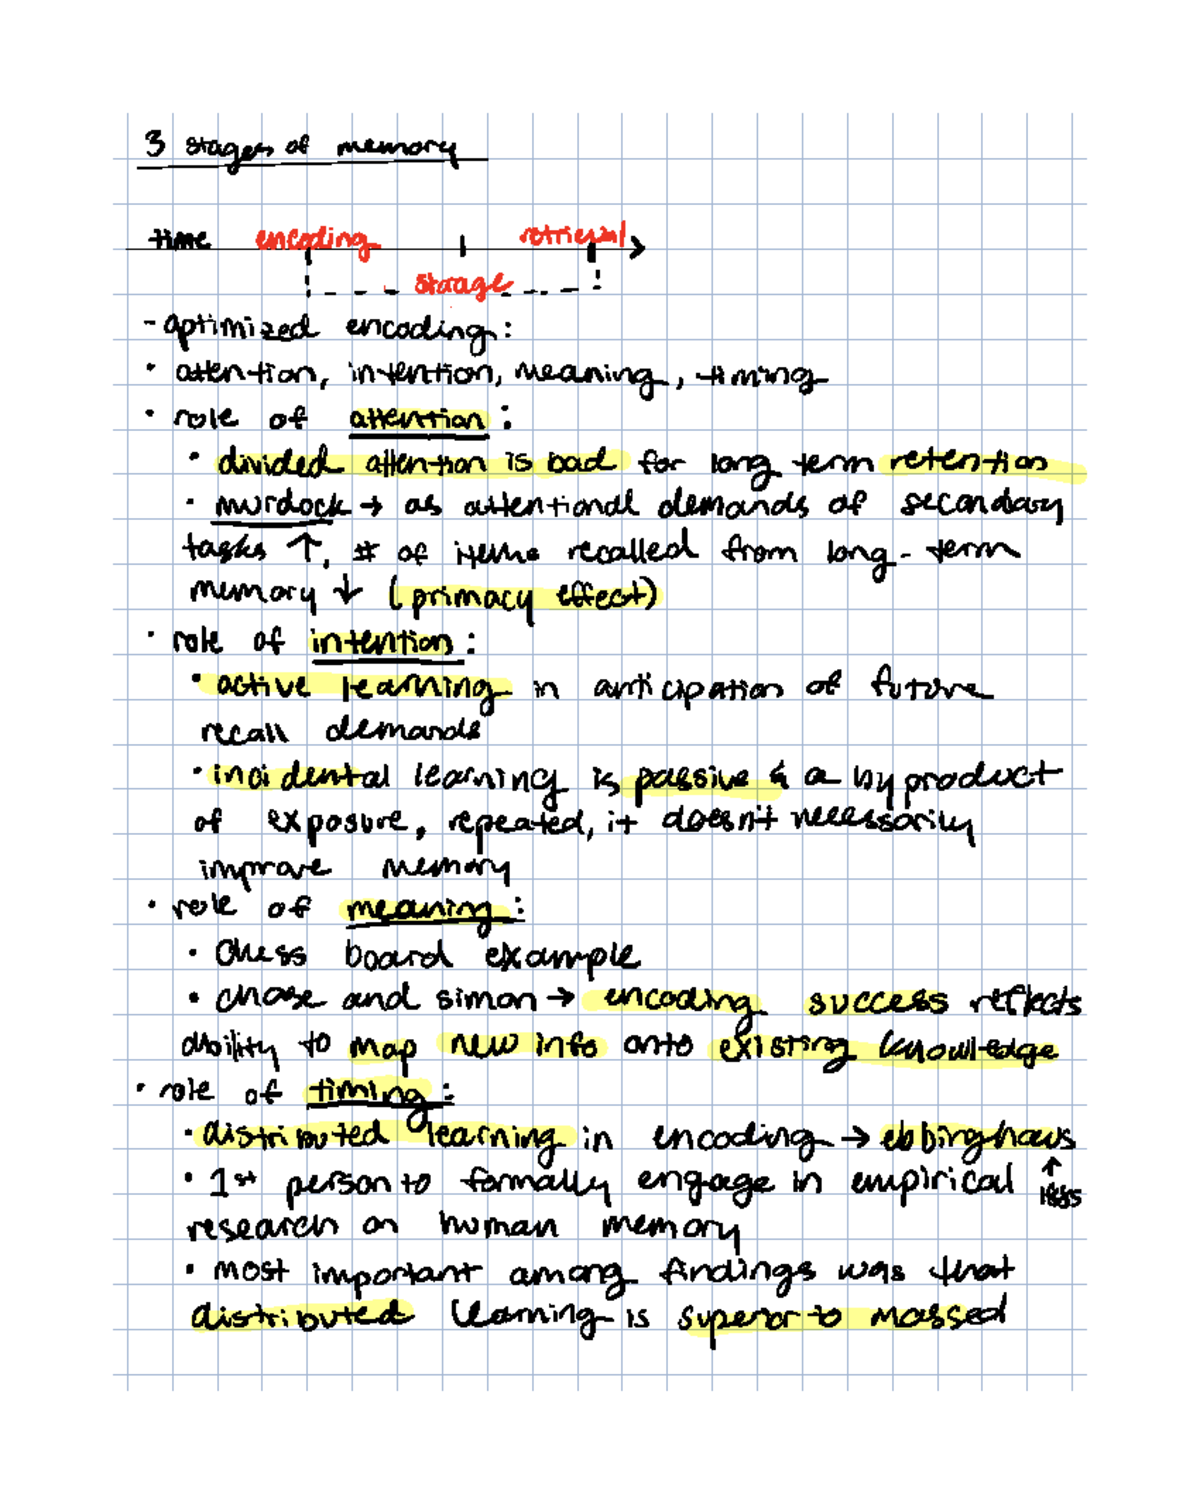 3 stages of memory
time encoding retrieval
storage
- optimized encoding:
• attention, intention, meaning, timing
• role of attention:
• divided attention is bad for long term retention
• murdock → as attentional demands of secondary
tasks ↑, # of items recalled from long-term
memory ↓ (primacy effect)
• role of intention:
• active learning in anticipation of future
recall demands
• incidental learning is passive & a byproduct
of exposure, repeated, it doesn't necessarily
improve memory
• role of meaning:
• chess board example
• chase and simon → encoding success reflects
ability to map new info onto existing knowledge
• role of timing:
• distributed learning in encoding → ebbinghaus
• 1st person to formally engage in empirical ↑ 1885
research on human memory
• most important among findings was that
distributed learning is superor to massed